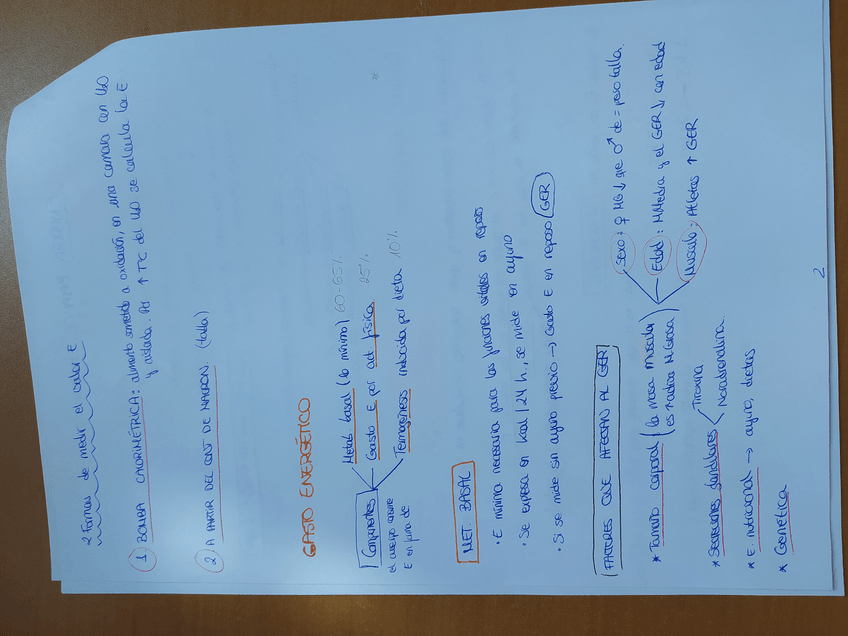 2 Formas de medir el valor E
① BOMBA CALORIMÉTRICA: alimento sometido a oxidación, en una camara con H₂O
y aislada. Al ↑ Tª del H₂O se calcula la E
② A PARTIR DEL CONT DE MACRON. (tabla)
GASTO ENERGÉTICO
Componentes
Metab basal (lo mínimo) 60-65%
Gasto E por act física 25%
Termogénesis inducida por dieta 10%
el cuerpo
E en forma de
MET. BASAL
· E mínima necesaria para las funciones vitales en reposo
· Se expresa en kcal / 24 h, se mide en ayuno
· Si se mide sin ayuno previo → Gasto E en reposo (GER)
FACTORES QUE AFECTAN AL GER
* Tamaño corporal (la masa muscular
es ↑activa M.Grasa)
Sexo: ♀ MB ↓ que ♂ de = peso talla.
Edad: M.Metabra y el GER ↓ con edad
Musculo: Atletas ↑ GER
* Secreciones glandulares
Tiroxina
Noradrenalina.
* E. nutricional → ayuno, dietas
* Genética
2